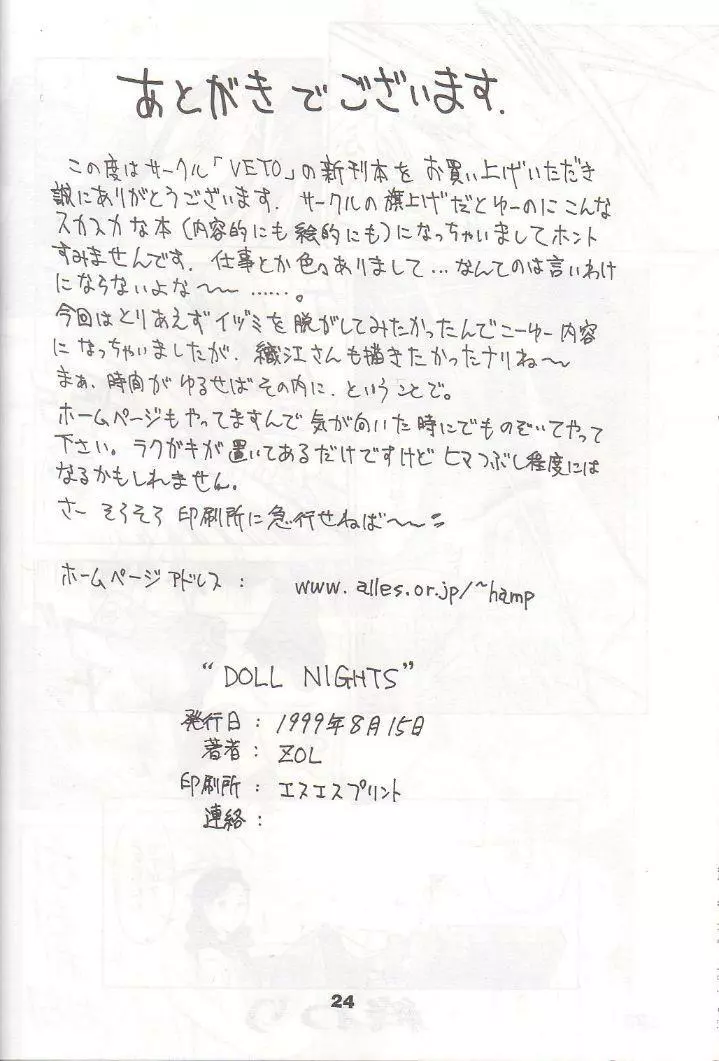 あとがきでございます.
この度はサークル「VETO」の新刊本をお買い上げいただき
誠にありがとうございます. サークルの旗上げだとゆーのにこんな
スカスカな本(内容的にも絵的にも)になっちゃいましてホント
すみませんです. 仕事とか色々ありまして…なんてのは言いわけ
にならないよな〜〜……。
今回はとりあえずイヅミを脱がしてみたかったんでこーゆー内容
になっちゃいましたが. 織江さんも描きたかったナリね〜〜
まぁ. 時間がゆるせばその内に. ということで。
ホームページもやってますんで気が向いた時にでものぞいてやって
下さい。ラクガキが置いてあるだけですけどヒマつぶし程度には
なるかもしれません.
さー そろそろ 印刷所に急行せねば〜〜
ホームページアドレス : www.alles.or.jp/~hamp
"DOLL NIGHTS"
発行日 : 1999年8月15日
著者 : ZOL
印刷所 : エスエスプリント
連絡 :
24